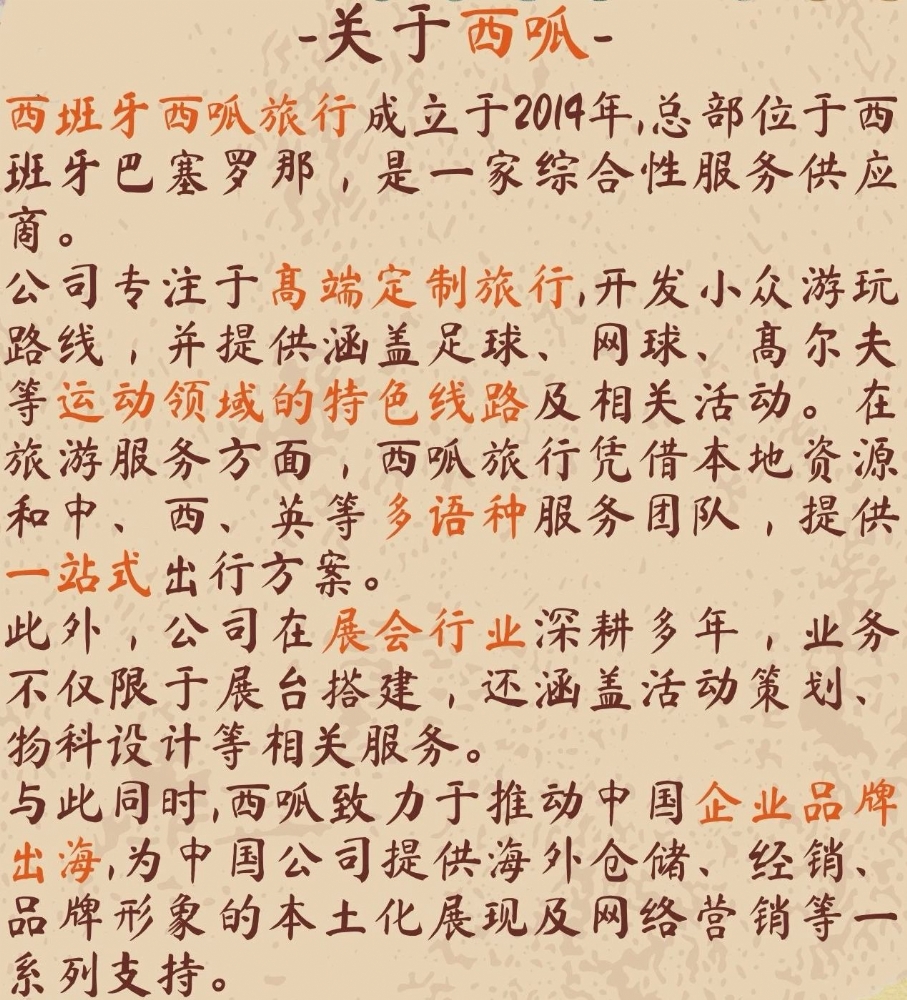 -关于西呱-
西班牙西呱旅行成立于2014年,总部位于西
班牙巴塞罗那，是一家综合性服务供应
商。
公司专注于高端定制旅行,开发小众游玩
路线，并提供涵盖足球、网球、高尔夫
等运动领域的特色线路及相关活动。在
旅游服务方面，西呱旅行凭借本地资源
和中、西、英等多语种服务团队，提供
一站式出行方案。
此外，公司在展会行业深耕多年，业务
不仅限于展台搭建，还涵盖活动策划、
物科设计等相关服务。
与此同时,西呱致力于推动中国企业品牌
出海,为中国公司提供海外仓储、经销、
品牌形象的本土化展现及网络营销等一
系列支持。